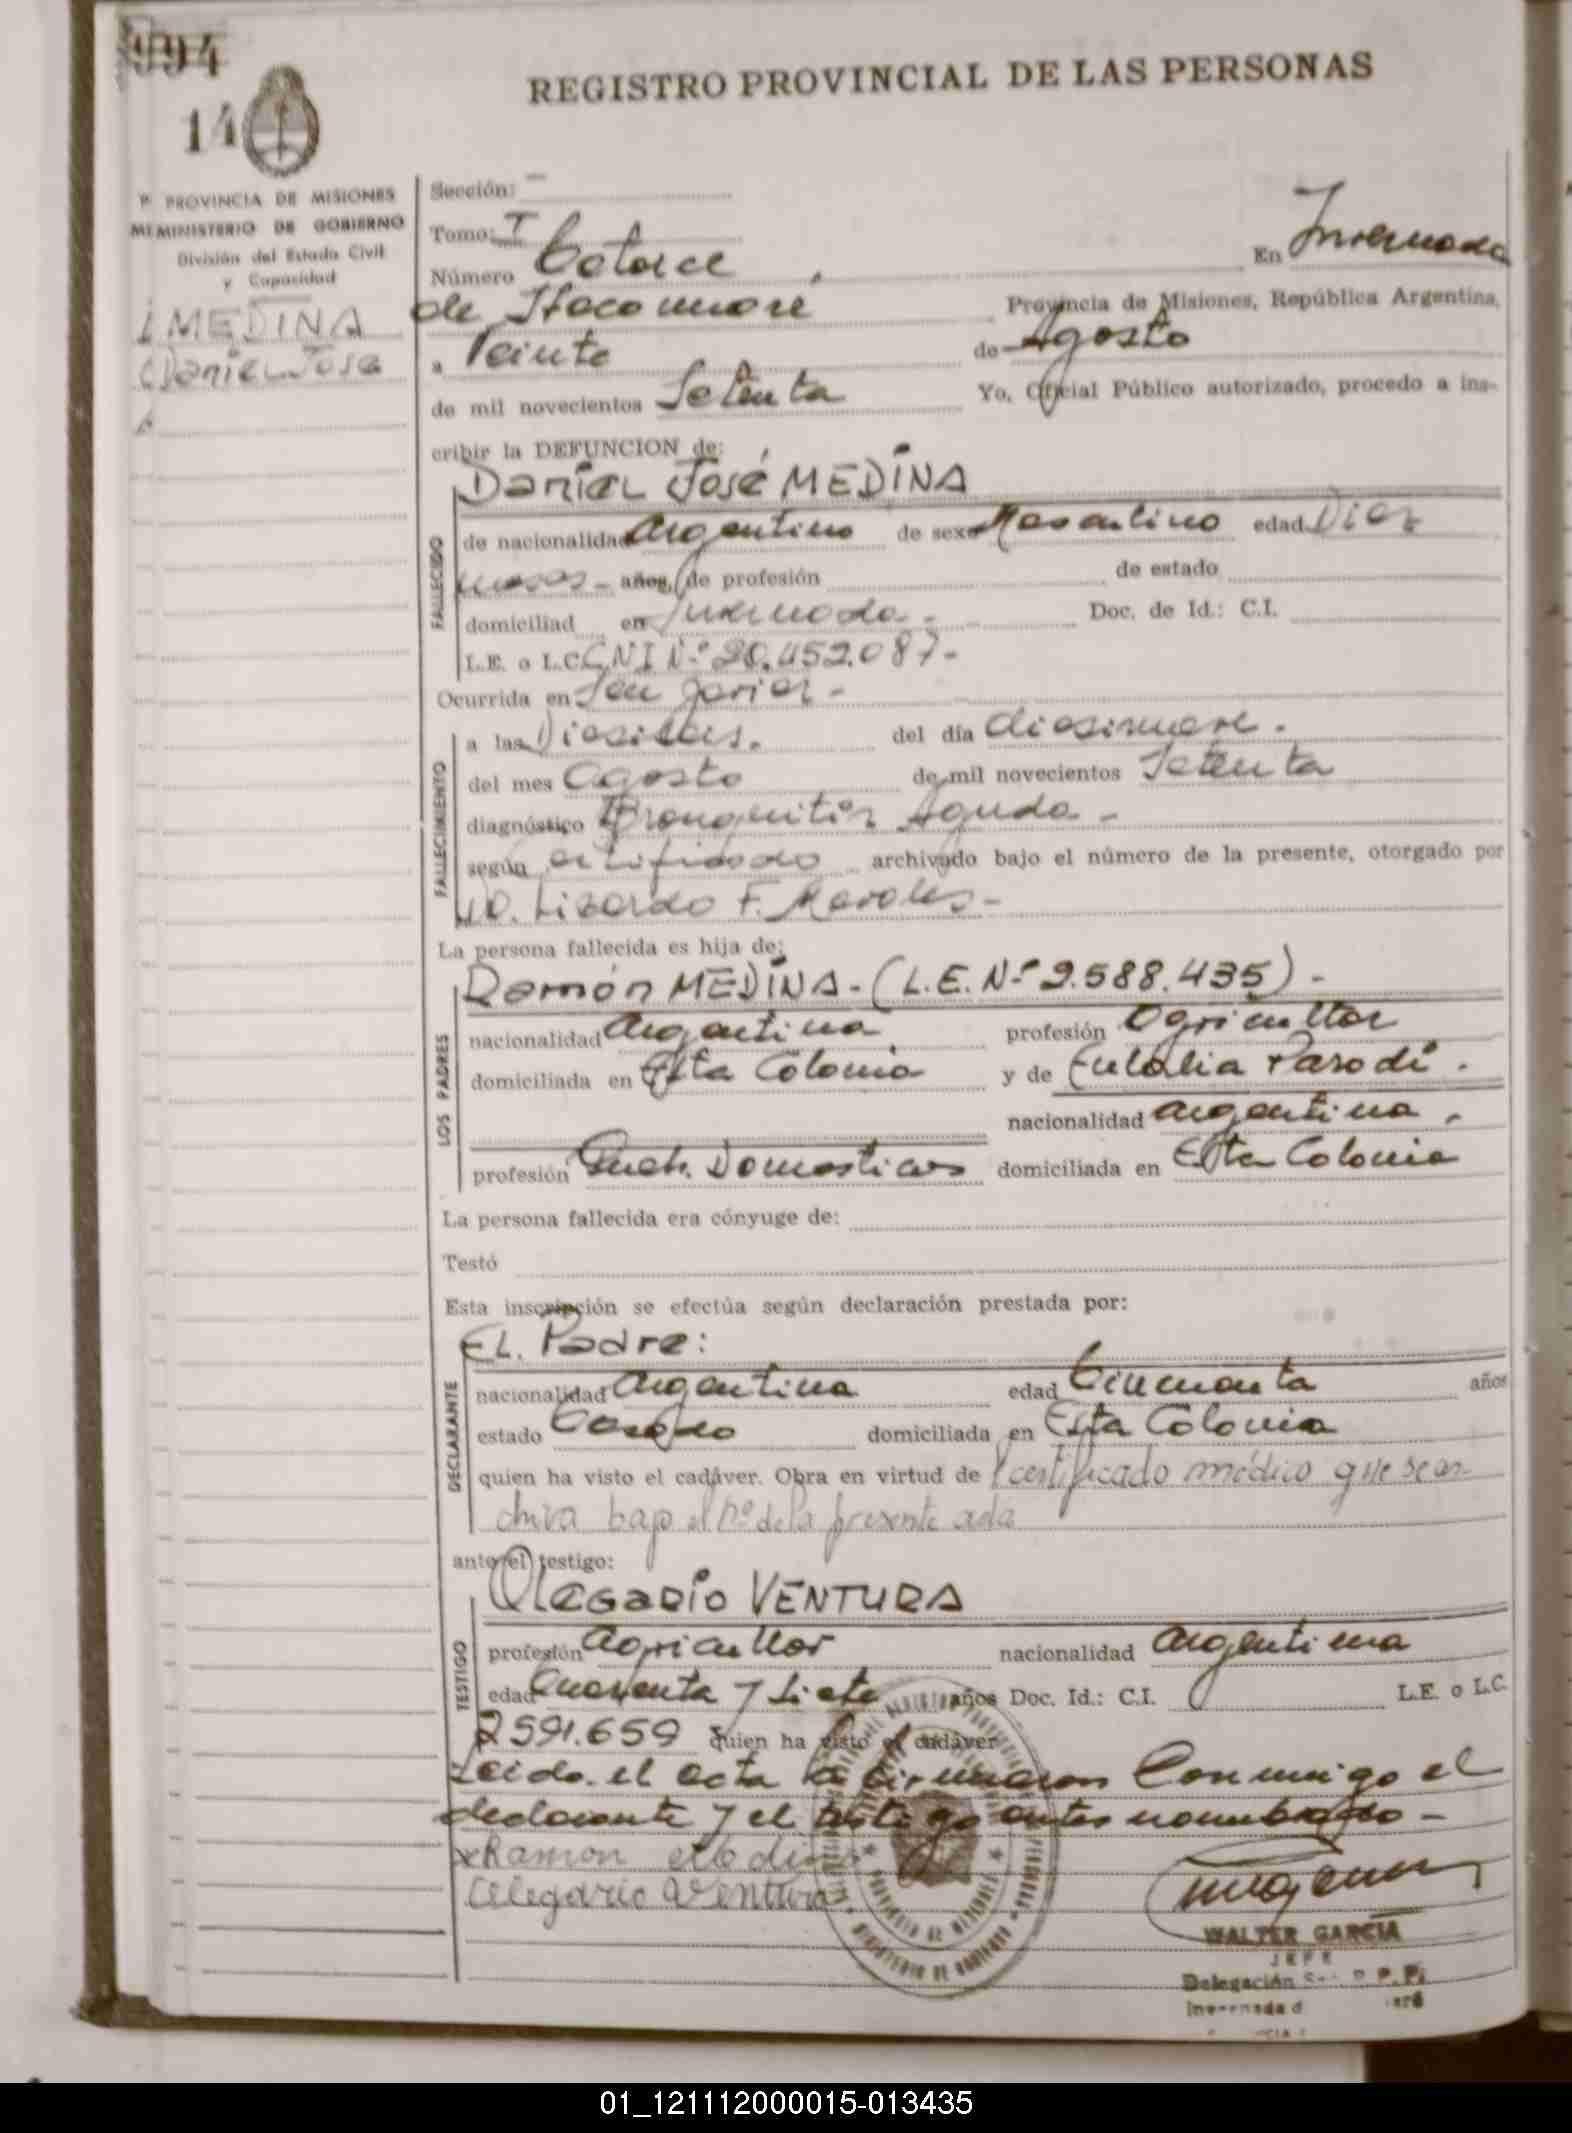 994
14
REGISTRO PROVINCIAL DE LAS PERSONAS
PROVINCIA DE MISIONES
MINISTERIO DE GOBIERNO
División del Estado Civil
y Capacidad
MEDINA
Daniel José
Sección:
Tomo: I
Número Catorce
En Invernada
de Itacaruaré Provincia de Misiones, República Argentina,
a Veinte de Agosto
de mil novecientos Setenta Yo, Oficial Público autorizado, procedo a ins-
cribir la DEFUNCION de:
Daniel José MEDINA
FALLECIDO
de nacionalidad Argentino de sexo Masculino edad Diez
meses - años, de profesión de estado
domiciliad en Invernada - Doc. de Id.: C.I.
L.E. o L.C. CNI Nº 20.452.087-
Ocurrida en San Javier -
FALLECIMIENTO
a las del día diecinueve.
del mes Agosto de mil novecientos Setenta
diagnóstico Aguda -
según certificado archivado bajo el número de la presente, otorgado por
D. Lizardo F. Morales -
La persona fallecida es hija de:
LOS PADRES
Ramón MEDINA - (L.E. Nº 2.588.435) -
nacionalidad Argentina profesión Agricultor
domiciliada en Esta Colonia y de Eulalia Parodi.
nacionalidad argentina.
profesión Queh. Domesticos domiciliada en Esta Colonia
La persona fallecida era cónyuge de:
Testó
Esta inscripción se efectúa según declaración prestada por:
EL. Padre:
DECLARANTE
nacionalidad Argentina edad Cincuenta años
estado Casado domiciliada en Esta Colonia
quien ha visto el cadáver. Obra en virtud de certificado médico que se ar-
chiva bajo el nº de la presente acta
ante el testigo:
Olegario VENTURA
TESTIGO
profesión Agricultor nacionalidad Argentina
edad Cuarenta y Siete años Doc. Id.: C.I. L.E. o L.C.
2591.659 quien ha visto el cadáver
Leida el acta la firmaron Conmigo el
declarante y el testigo antes nombrado -
x Ramon Medina
Olegario Ventura
WALTER GARCIA
JEFE
Delegación
01_121112000015-013435